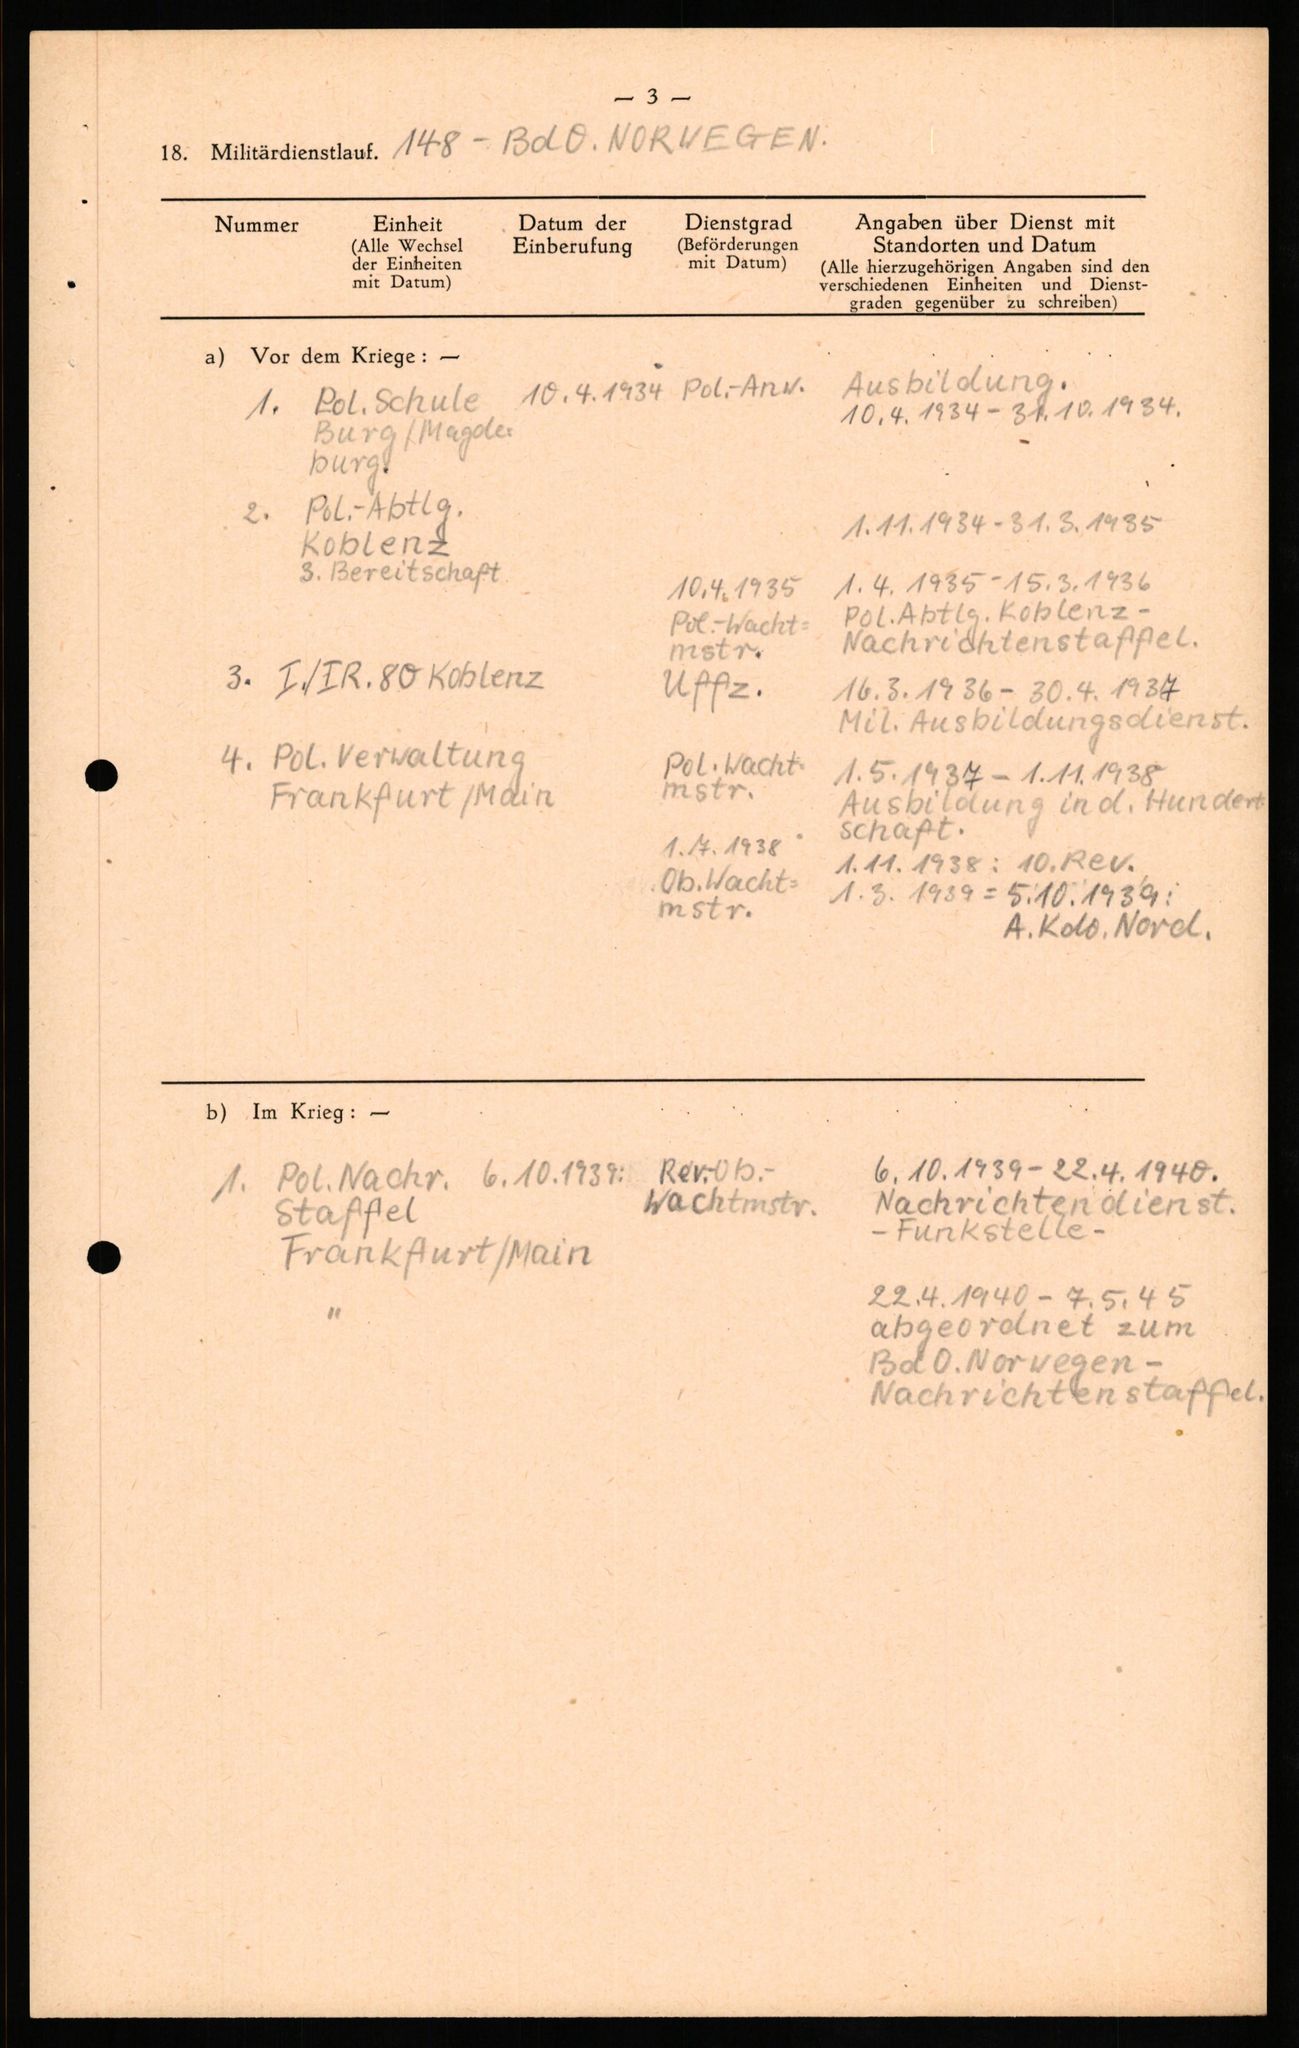 — 3 —
18. Militärdienstlauf. 148 - BdO. NORWEGEN.
Nummer Einheit Datum der Dienstgrad Angaben über Dienst mit
(Alle Wechsel Einberufung (Beförderungen Standorten und Datum
der Einheiten mit Datum) (Alle hierzugehörigen Angaben sind den
mit Datum) verschiedenen Einheiten und Dienst-
graden gegenüber zu schreiben)
a) Vor dem Kriege: —
1. Pol. Schule 10.4.1934 Pol.-Anw. Ausbildung.
Burg/Magde= 10.4.1934 - 31.10.1934.
burg.
2. Pol.-Abtlg. 1.11.1934 - 31.3.1935
Koblenz
3. Bereitschaft
10.4.1935 1.4.1935 - 15.3.1936
Pol.-Wacht= Pol. Abtlg. Koblenz -
mstr. Nachrichtenstaffel.
3. I./IR. 80 Koblenz Uffz. 16.3.1936 - 30.4.1937
Mil. Ausbildungsdienst.
4. Pol. Verwaltung Pol. Wacht= 1.5.1937 - 1.11.1938
Frankfurt/Main mstr. Ausbildung in d. Hundert
schaft.
1.7.1938 1.11.1938: 10. Rev.
Ob. Wacht= 1.3.1939 = 5.10.1939:
mstr. A. Kdo. Nord.
b) Im Krieg: —
1. Pol. Nachr. 6.10.1939: Rev.-Ob.- 6.10.1939 - 22.4.1940.
Staffel Wachtmstr. Nachrichtendienst.
Frankfurt/Main - Funkstelle -
" 22.4.1940 - 7.5.45
abgeordnet zum
BdO. Norwegen -
Nachrichtenstaffel.